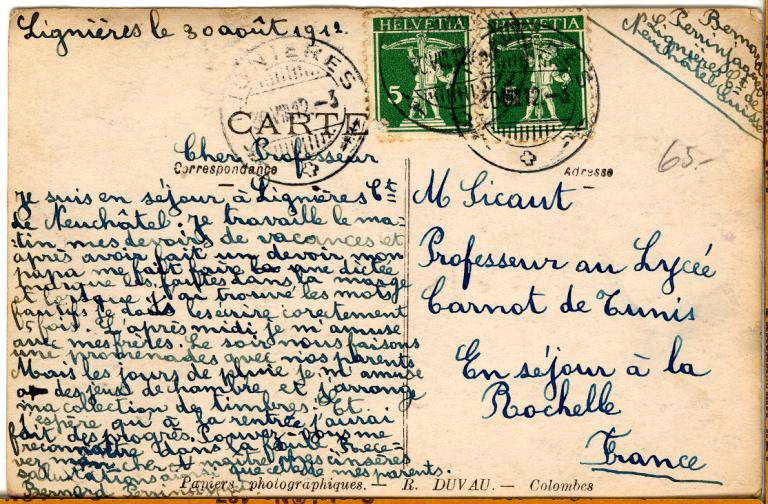 Lignières le 30 août 1912
HELVETIA HELVETIA
5
LIGNIERES
Perrinjaquet
Lignières Ct de
Neuchâtel Suisse
CARTE
65.-
Correspondance
Adresse
Cher Professeur
Je suis en séjour à Lignières Ct
de Neuchâtel. Je travaille le ma-
tin mes devoirs de vacances et
après avoir fait un devoir mon
papa me fait faire une dictée
les fautes dans la marge
et lorsque j'ai trouvé les mots
fautifs je dois les écrire corectement
5 fois. L'après midi je m'amuse
avec mes frères. Le soir nous faisons
une promenades avec nos parents
Mais les jours de pluie je m'amuse
a des jeux de chambre et j'arrange
ma collection de timbres. Et
j'espère qu'à la rentrée j'aurai
fait des progrès. Pouvez vous me
reconnaître dans la
cher maître
salutations que celles de mes parents.
Bernard
M Sicaut
Professeur au Lycée
Carnot de Tunis
En séjour à la
Rochelle
France
Papiers photographiques. — R. DUVAU. — Colombes